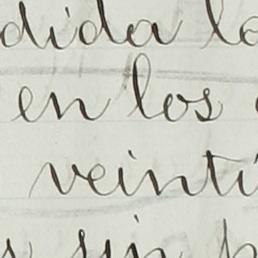 dida lo
en los
veinti
sin p